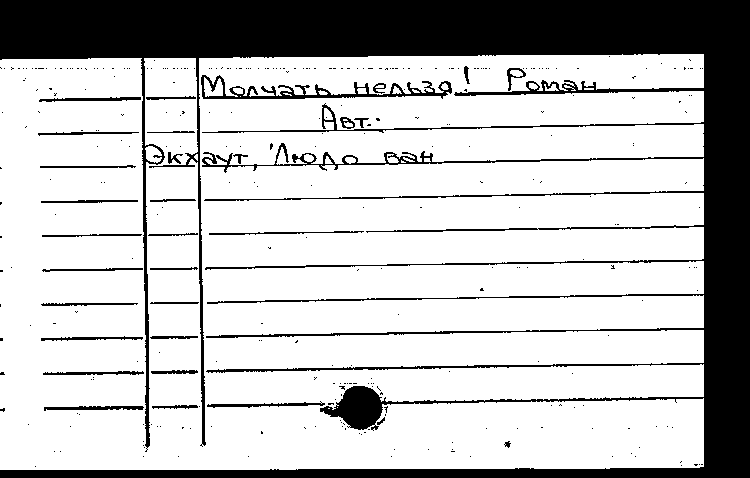 Молчать нельзя! Роман
Авт.:
Экхаут, Людо ван